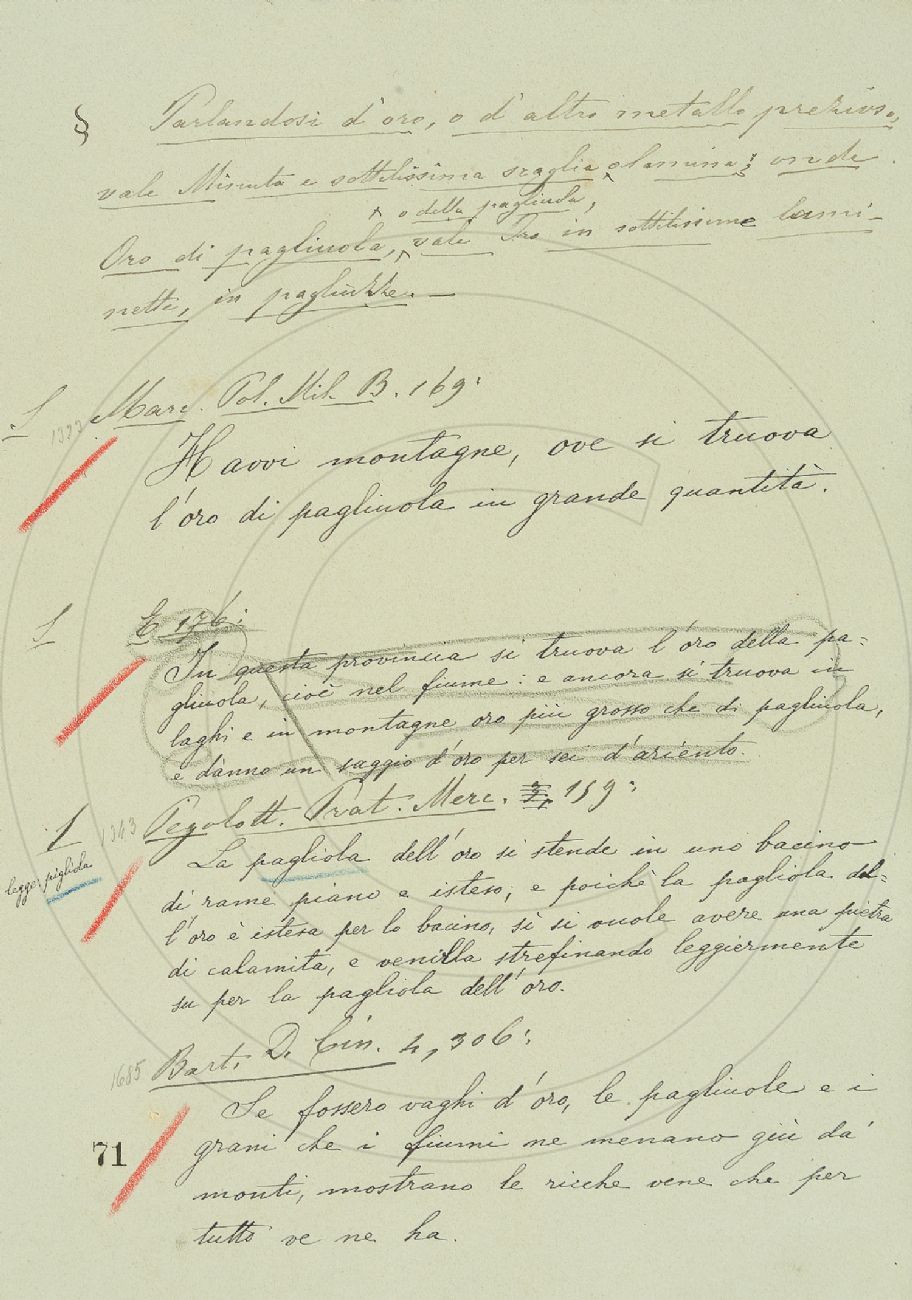 § Parlandosi d'oro, o d'altro metallo prezioso,
vale Minuta e sottilissima scaglia o lamina; onde
o della pagliuola,
Oro di pagliuola, vale Oro in sottilissime lami-
nette, in pagliuzze. —
S 1323 Marc. Pol. Mil. B. 169:
Havvi montagne, ove si truova
l'oro di pagliuola in grande quantità.
S E 176:
In questa provincia si truova l'oro della pa=
gliuola, cioè nel fiume: e ancora si truova in
laghi e in montagne oro più grosso che di pagliuola,
e danno un saggio d'oro per sei d'ariento.
1 1343 Pegolott. Prat. Merc. 159:
legger pigliola
La pagliola dell'oro si stende in uno bacino
di rame piano e isteso; e poichè la pagliola del=
l'oro è istesa per lo bacino, sì si vuole avere una pietra
di calamita, e venilla strefinando leggiermente
su per la pagliola dell'oro.
1685 Bart. D. Cin. 4, 306:
Se fossero vaghi d'oro, le pagliuole e i
grani che i fiumi ne menano giù da'
monti, mostrano le ricche vene che per
tutto ve ne ha.
71